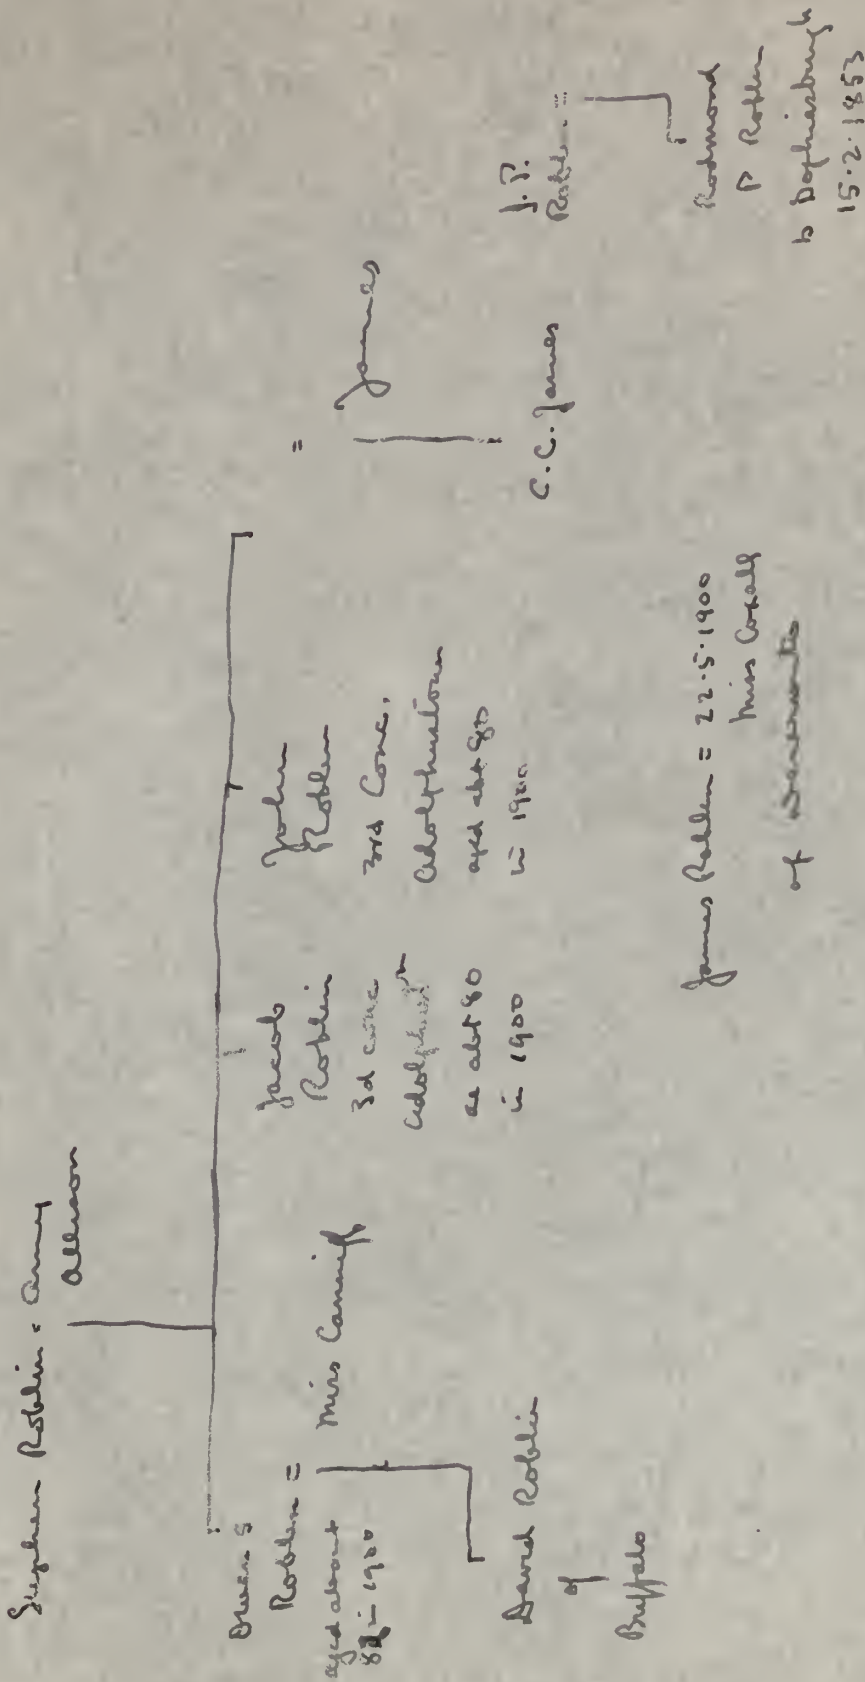 Stephen Roblin = Amey
Allison
Owen S
Roblin =
aged about
in 1900
Miss Canniff
David Roblin
of
Buffalo
Jacob
Roblin
3d conc
Adolphust n
ae abt 80
in 1900
John
Roblin
3rd Conc.
Adolphustown
aged abt 80
in 1900
= James
C.C. James
J.P.
Roblin =
Rodmond
P Roblin
b Sophiasburgh
15.2.1853
James Roblin = 22.5.1900
Miss
of